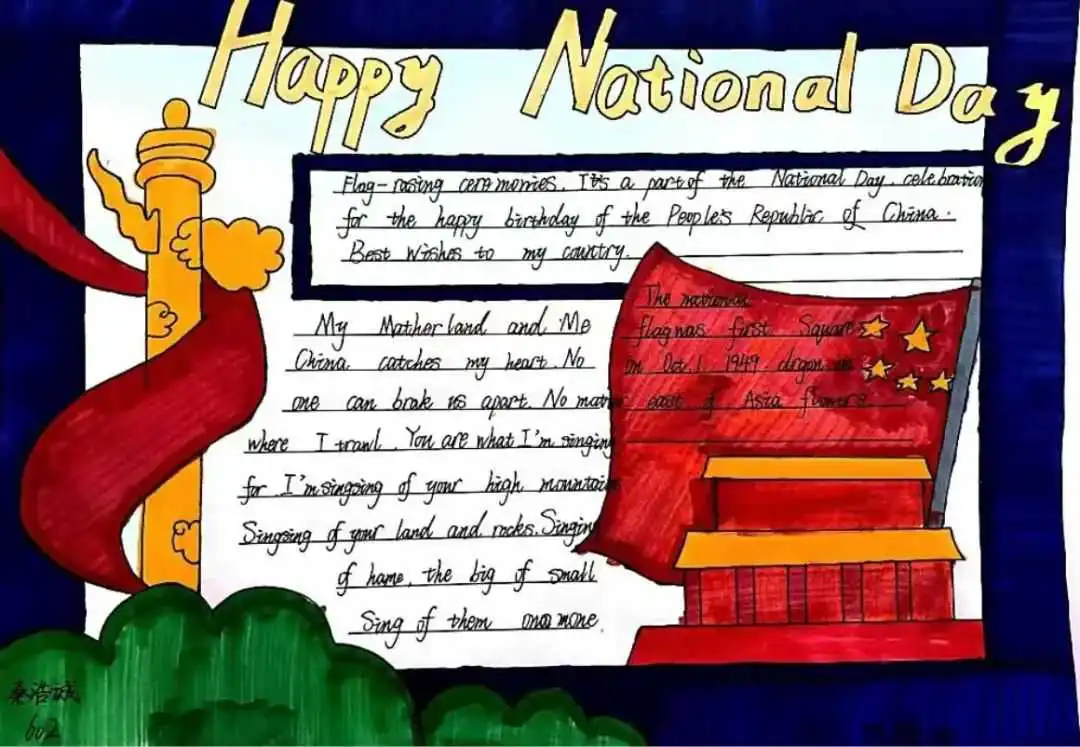 Happy National Day
Flag-rasing ceremonies. It's a part of the National Day. celebration
for the happy birthday of the People's Republic of China.
Best Wishes to my country.
My Matherland and Me
China catches my heart. No
one can brak us apart. No matter
where I trawl. You are what I'm singing
for I'm singsing of your high mountains
Singsing of your land and rocks. Singing
of hame, the big of small
Sing of them once mone
The national
flag was first Square
on Oct. 1. 1949.
east of Asia flowers
602